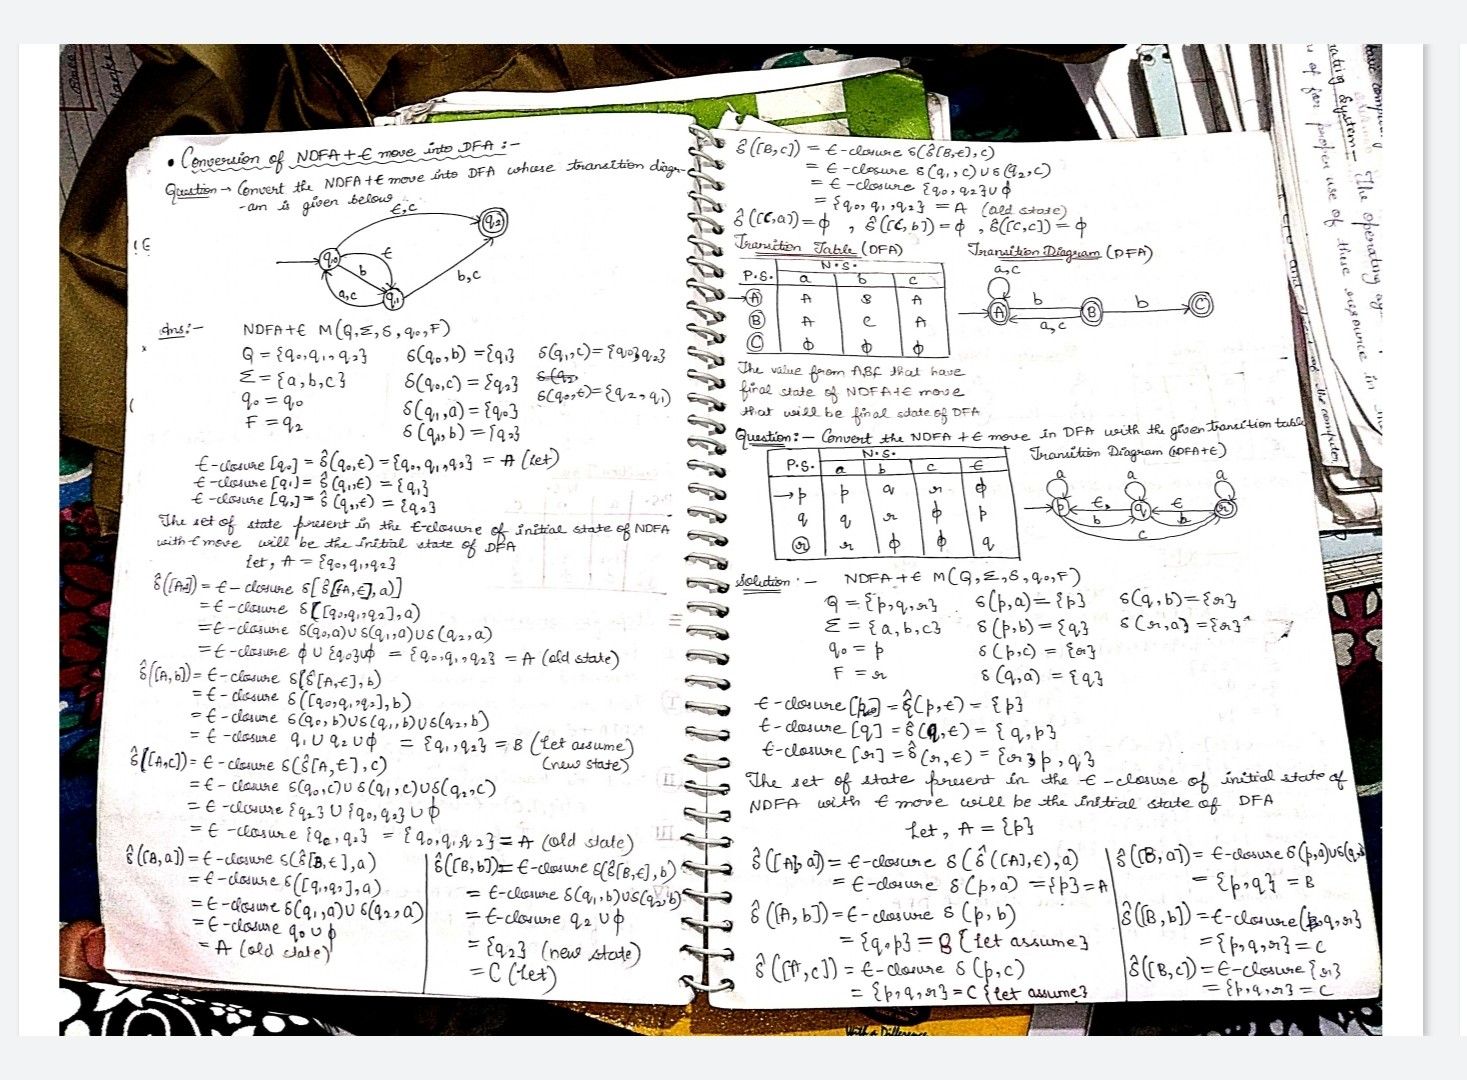 • Conversion of NDFA+ϵ move into DFA :-
Question → Convert the NDFA+ϵ move into DFA whose transition diagr-
-am is given below
ϵ,c
q2
q0
ϵ
b
a,c
q1
b,c
Ans:- NDFA+ϵ M(Q,Σ,δ,q0,F)
Q = {q0,q1,q2} δ(q0,b) = {q1} δ(q1,c) = {q0,q2}
Σ = {a,b,c} δ(q0,c) = {q2}
q0 = q0 δ(q0,ϵ) = {q2,q1}
δ(q1,a) = {q0}
F = q2
δ(q1,b) = {q2}
ϵ-closure [q0] = δ̂(q0,ϵ) = {q0,q1,q2} = A (let)
ϵ-closure [q1] = δ̂(q1,ϵ) = {q1}
ϵ-closure [q2] = δ̂(q2,ϵ) = {q2}
The set of state present in the ϵ-closure of initial state of NDFA
with ϵ move will be the initial state of DFA
let, A = {q0,q1,q2}
δ̂([A,a]) = ϵ-closure δ[δ̂[A,ϵ],a)]
= ϵ-closure δ([q0,q1,q2],a)
= ϵ-closure δ(q0,a)∪δ(q1,a)∪δ(q2,a)
= ϵ-closure ϕ∪{q0}∪ϕ = {q0,q1,q2} = A (old state)
δ̂([A,b]) = ϵ-closure δ(δ̂[A,ϵ],b)
= ϵ-closure δ([q0,q1,q2],b)
= ϵ-closure δ(q0,b)∪δ(q1,b)∪δ(q2,b)
= ϵ-closure q1∪q2∪ϕ = {q1,q2} = B (let assume)
(new state)
δ̂([A,c]) = ϵ-closure δ(δ̂[A,ϵ],c)
= ϵ-closure δ(q0,c)∪δ(q1,c)∪δ(q2,c)
= ϵ-closure {q2}∪{q0,q2}∪ϕ
= ϵ-closure {q0,q2} = {q0,q1,q2} = A (old state)
δ̂([B,a]) = ϵ-closure δ(δ̂[B,ϵ],a)
= ϵ-closure δ([q1,q2],a)
= ϵ-closure δ(q1,a)∪δ(q2,a)
= ϵ-closure q0∪ϕ
= A (old state)
δ̂([B,b]) = ϵ-closure δ(δ̂[B,ϵ],b)
= ϵ-closure δ(q1,b)∪δ(q2,b)
= ϵ-closure q2∪ϕ
= {q2} (new state)
= C (let)
δ̂([B,c]) = ϵ-closure δ(δ̂[B,ϵ],c)
= ϵ-closure δ(q1,c)∪δ(q2,c)
= ϵ-closure {q0,q2}∪ϕ
= {q0,q1,q2} = A (old state)
δ̂([C,a]) = ϕ , δ̂([C,b]) = ϕ , δ̂([C,c]) = ϕ
Transition Table (DFA) Transition Diagram (DFA)
N.S.
P.S. a b c
→A A B A
B A C A
C ϕ ϕ ϕ
a,c
A
b
B
b
C
a,c
The value from A,B,C that have
final state of NDFA+ϵ move
that will be final state of DFA
Question:- Convert the NDFA +ϵ move in DFA with the given transition table
N.S.
P.S. a b c ϵ
→p p q r ϕ
q q r ϕ p
r r ϕ ϕ q
Transition Diagram (NDFA+ϵ)
a a
p ϵ q ϵ r
b b
c
Solution:- NDFA+ϵ M(Q,Σ,δ,q0,F)
Q = {p,q,r} δ(p,a) = {p} δ(q,b) = {r}
Σ = {a,b,c} δ(p,b) = {q} δ(r,a) = {r}
q0 = p δ(p,c) = {r}
F = r δ(q,a) = {q}
ϵ-closure [p] = δ̂(p,ϵ) = {p}
ϵ-closure [q] = δ̂(q,ϵ) = {q,p}
ϵ-closure [r] = δ̂(r,ϵ) = {r, p, q}
The set of state present in the ϵ-closure of initial state of
NDFA with ϵ move will be the initial state of DFA
Let, A = {p}
δ̂([A, a]) = ϵ-closure δ(δ̂([A],ϵ),a)
= ϵ-closure δ(p,a) = {p} = A
δ̂([A, b]) = ϵ-closure δ(p,b)
= {q,p} = B {let assume}
δ̂([A,c]) = ϵ-closure δ(p,c)
= {p,q,r} = C {let assume}
δ̂([B,a]) = ϵ-closure δ(p,a)∪δ(q,a)
= {p,q} = B
δ̂([B,b]) = ϵ-closure(q,r}
= {p,q,r} = C
δ̂([B,c]) = ϵ-closure {r}
= {p,q,r} = C
With a Difference